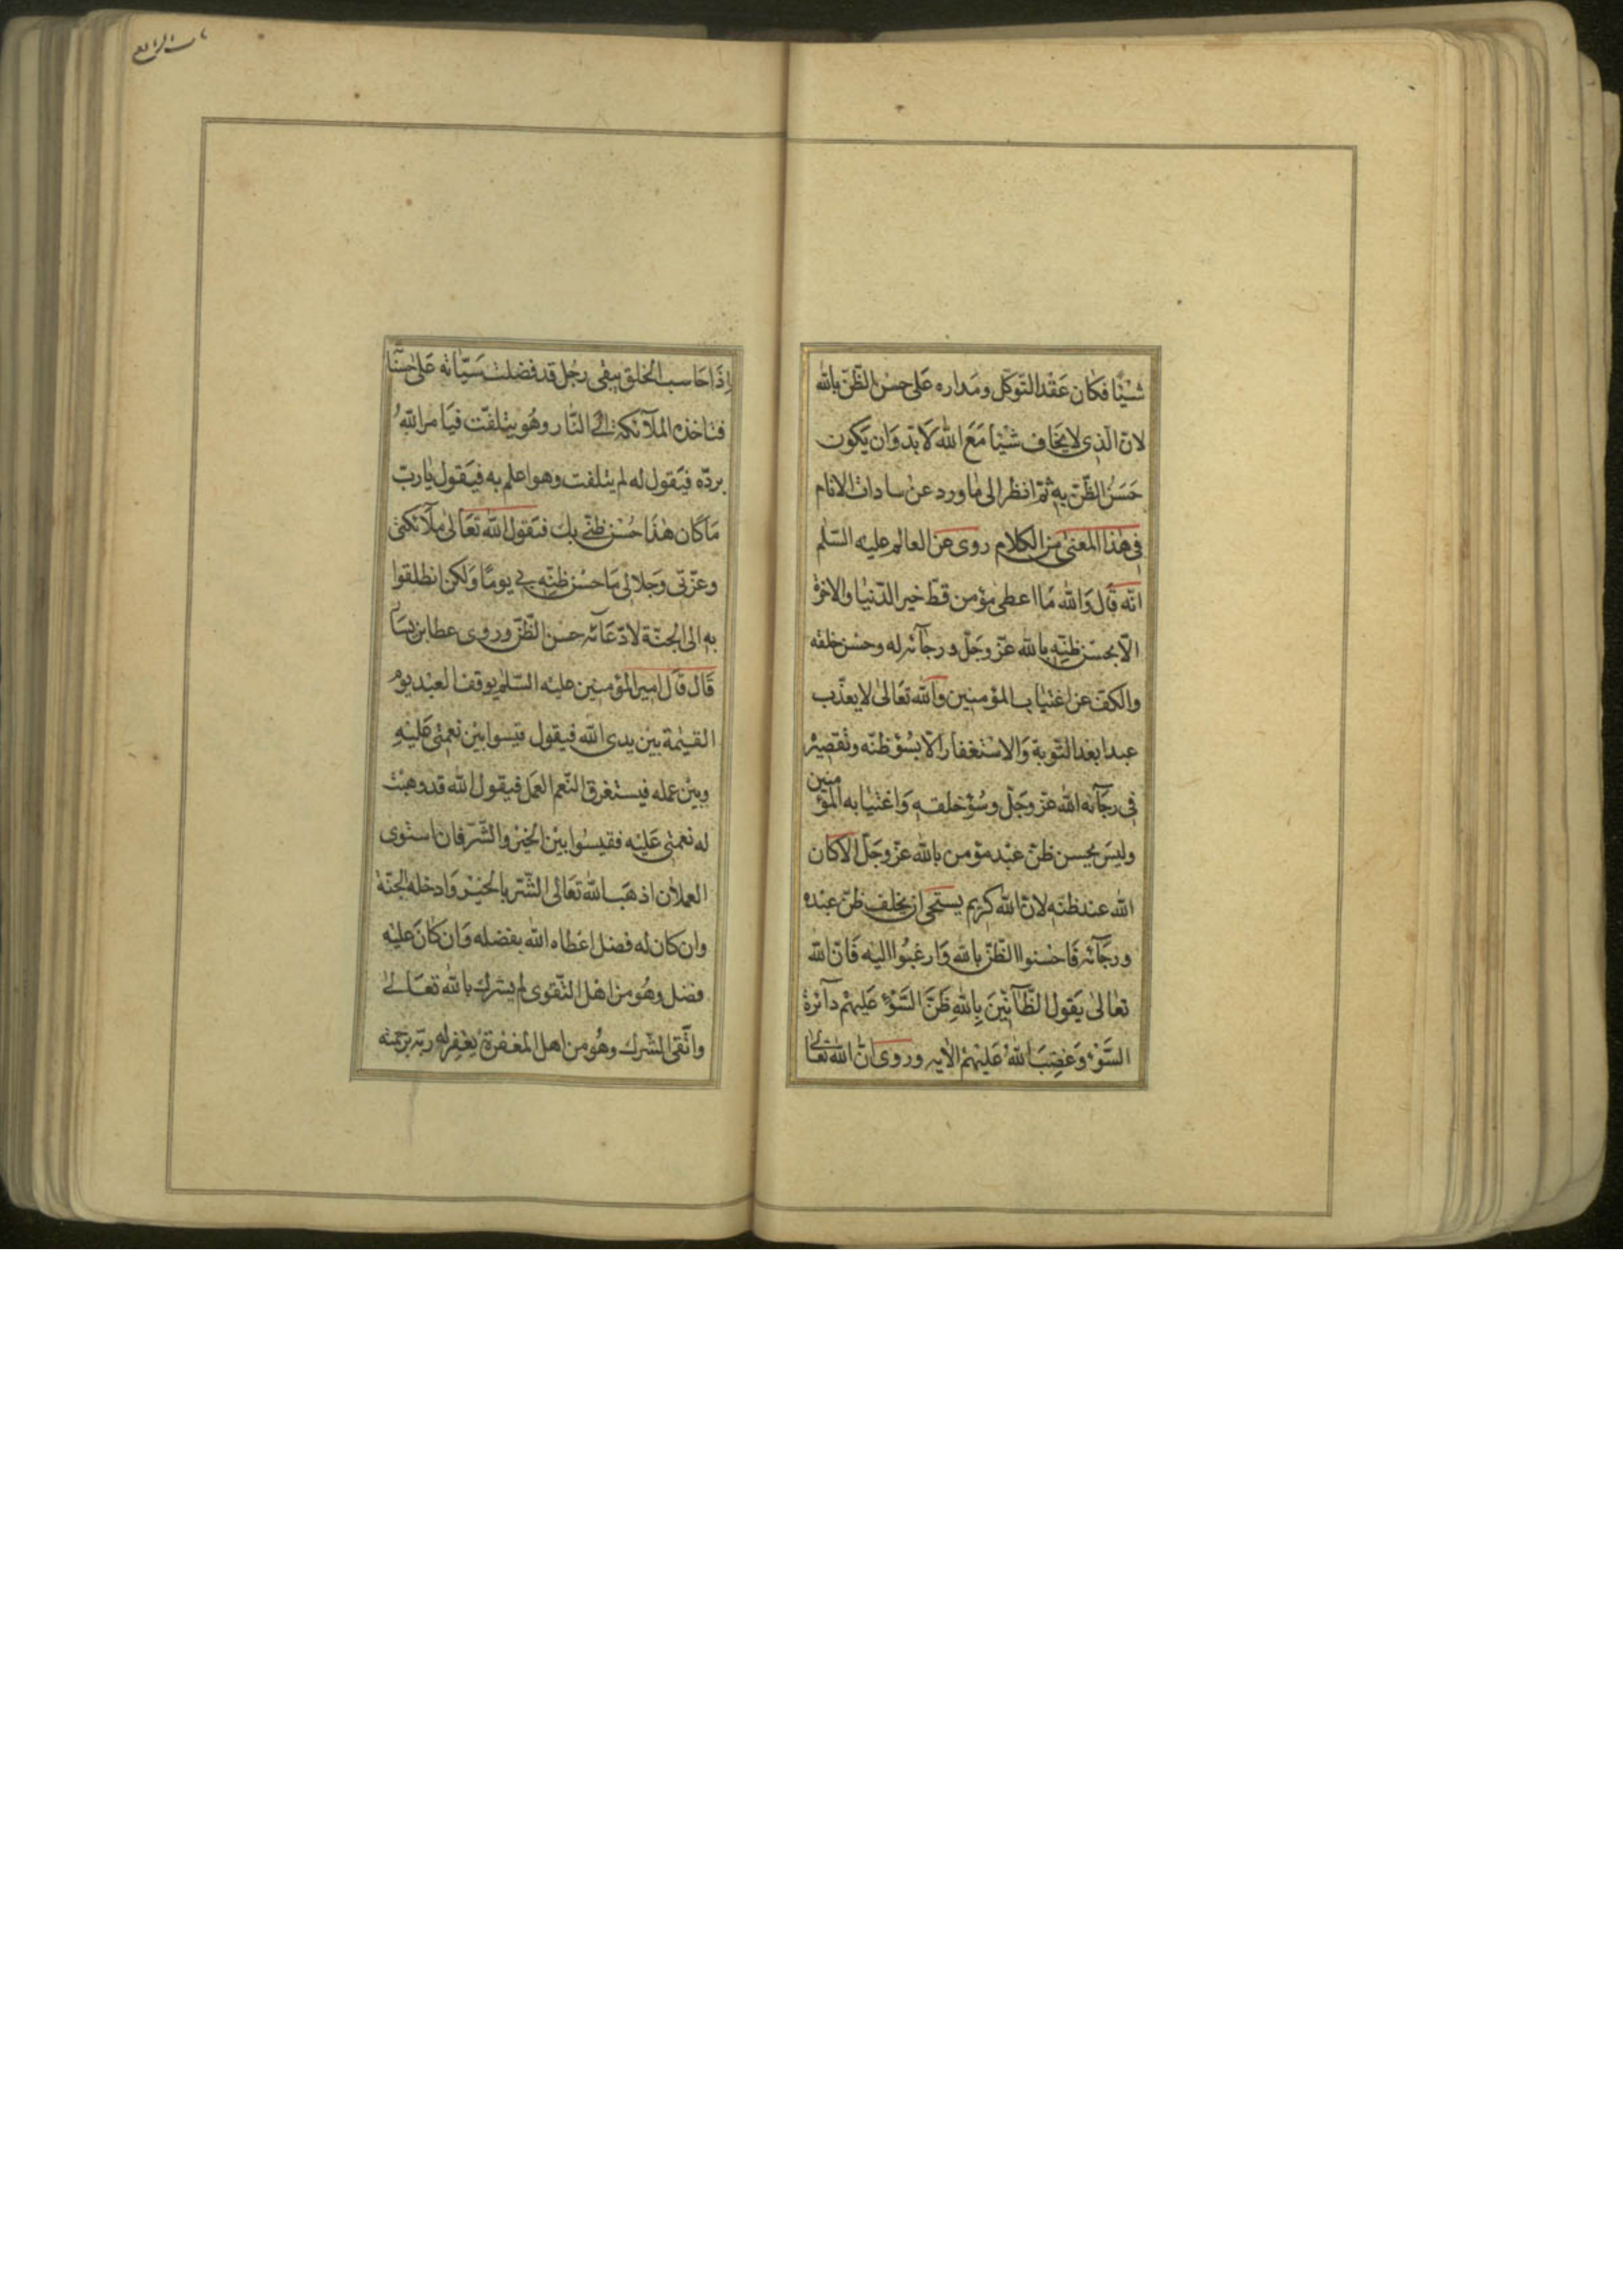 شَيْئًا فكان عَقْد التّوكّل ومَداره عَلى حسْن الظّنّ بالله
لانّ الّذى لا يخَاف شيْئا مَعَ الله لَا بدّ وَان يَكون
حَسَنُ الظّنّ بهِ ثمّ انظر الى ما ورد عن سادات الانام
فى هٰذا المعنىٰ من الكلام روى عن العالم عليه السّلم
انّه قال وَالله مَا اعطى مؤمن قطّ خير الدّنيَا والاخرة
الّا بحسْن ظنّه بالله عزّ وجَلّ ورجآئه له وحسْن خلقه
والكفّ عن اغتيَاب المؤمنين وَالله تعَالىٰ لا يعذّب
عبدا بعْد التّوبة وَالاسْتغفار الّا بسُوْء ظنّه وتقصيره
فى رجَآئه الله عزّ وجَلّ وسُوْء خلقه وَاغتيَابه المؤمنين
وليسَ يحسن ظنّ عبْد مؤمن بالله عزّ وجَلّ الّا كان
الله عند ظنّه لانّ الله كريم يستحيى ان يخلف ظنّ عبْده
ورجَآئه فَاحْسنوا الظّنّ بالله وَارغبُوا اليه فَانّ الله
تعَالىٰ يَقول الظَّآنّيْنَ بِاللهِ ظَنَّ السَّوْءِ عَليهِمْ دآئرة
السَّوْءِ وَغضِبَ اللهُ عَليْهِمْ الايه وروى انّ الله تعَالىٰ
اِذَا حَاسب الخلق يبقى رجُل قد فضلت سَيّئاته عَلىٰ حسنَا
فتاخذه الملآئكة الى النّار وهُو يتلفّت فيَامر اللهُ
بردّه فيَقول له لم يتلفت وهو اعلم به فيَقول يا ربّ
مَا كان هٰذَا حُسْن ظنّى بك فيَقول الله تعَالىٰ ملآئكتى
وعزّتى وجَلالى مَا حسُن ظنّه بى يومًا وَلكن انطلقوا
به الى الجنّة لادّعَآئه حسن الظّنّ وروى عطا بن يسَار
قَال قَال امير المؤمنِين عليْه السّلم يوقف العبْد يوم
القيٰمة بيْن يدى الله فيقول قيسوا بيْن نعَمى عَليْهِ
وبيْن عمله فيستغرق النّعم العمَل فيقول الله قد وهبْت
له نعَمى عَليْه فقيسُوا بيْن الخيْر والشّرّ فان استوى
العملان اذهَب الله تعَالى الشّرّ بالخيْر وَادخله الجنّة
وان كان له فضل اعْطاه الله بفضله وَان كانَ عليْه
فضل وهُو من اهْل التّقوى لم يشرك بالله تعَالىٰ
واتّقى الشّرك وهُو من اهل المغفرة يَغفر له ربّه برحمته